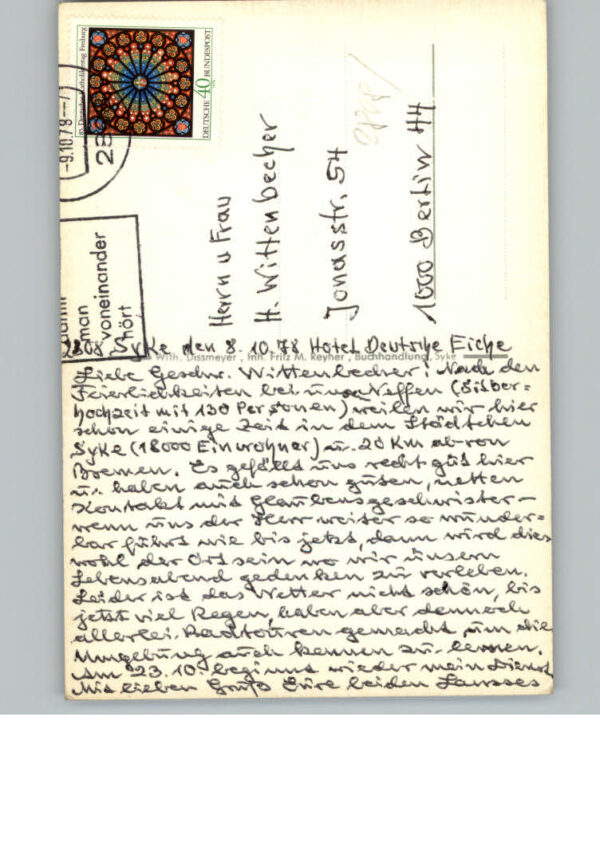 85. Deutscher Katholikentag Freiburg
DEUTSCHE BUNDESPOST 40
-9.10.78--7
28
man
voneinander
hört
Herrn u Frau
H. Wittenbecher
Jonasstr. 54
1000 Berlin 44
Wilh. Dissmeyer, Inh. Fritz M. Reyher, Buchhandlung, Syke
2808 Syke den 8.10.78 Hotel Deutsche Eiche
Liebe Geschw. Wittenbecher! Nach den
Feierlichkeiten bei unserm Neffen (Silber=
hochzeit mit 130 Personen) weilen wir hier
schon einige Zeit in dem Städtchen
Syke (18000 Einwohner) u. 20 Km ab von
Bremen. Es gefällt uns recht gut hier
u. haben auch schon guten, netten
Kontakt mit Glaubensgeschwister-
wenn uns der Herr weiter so wunder=
bar führt wie bis jetzt, dann wird dies
wohl der Ort sein wo wir unsern
Lebensabend gedenken zu verleben.
Leider ist das Wetter nicht schön, bis
jetzt viel Regen, haben aber dennoch
allerlei Radtouren gemacht um die
Umgebung auch kennen zu lernen.
Am 23.10. beginnt wieder mein Dienst
Mit lieben Gruß Eure beiden